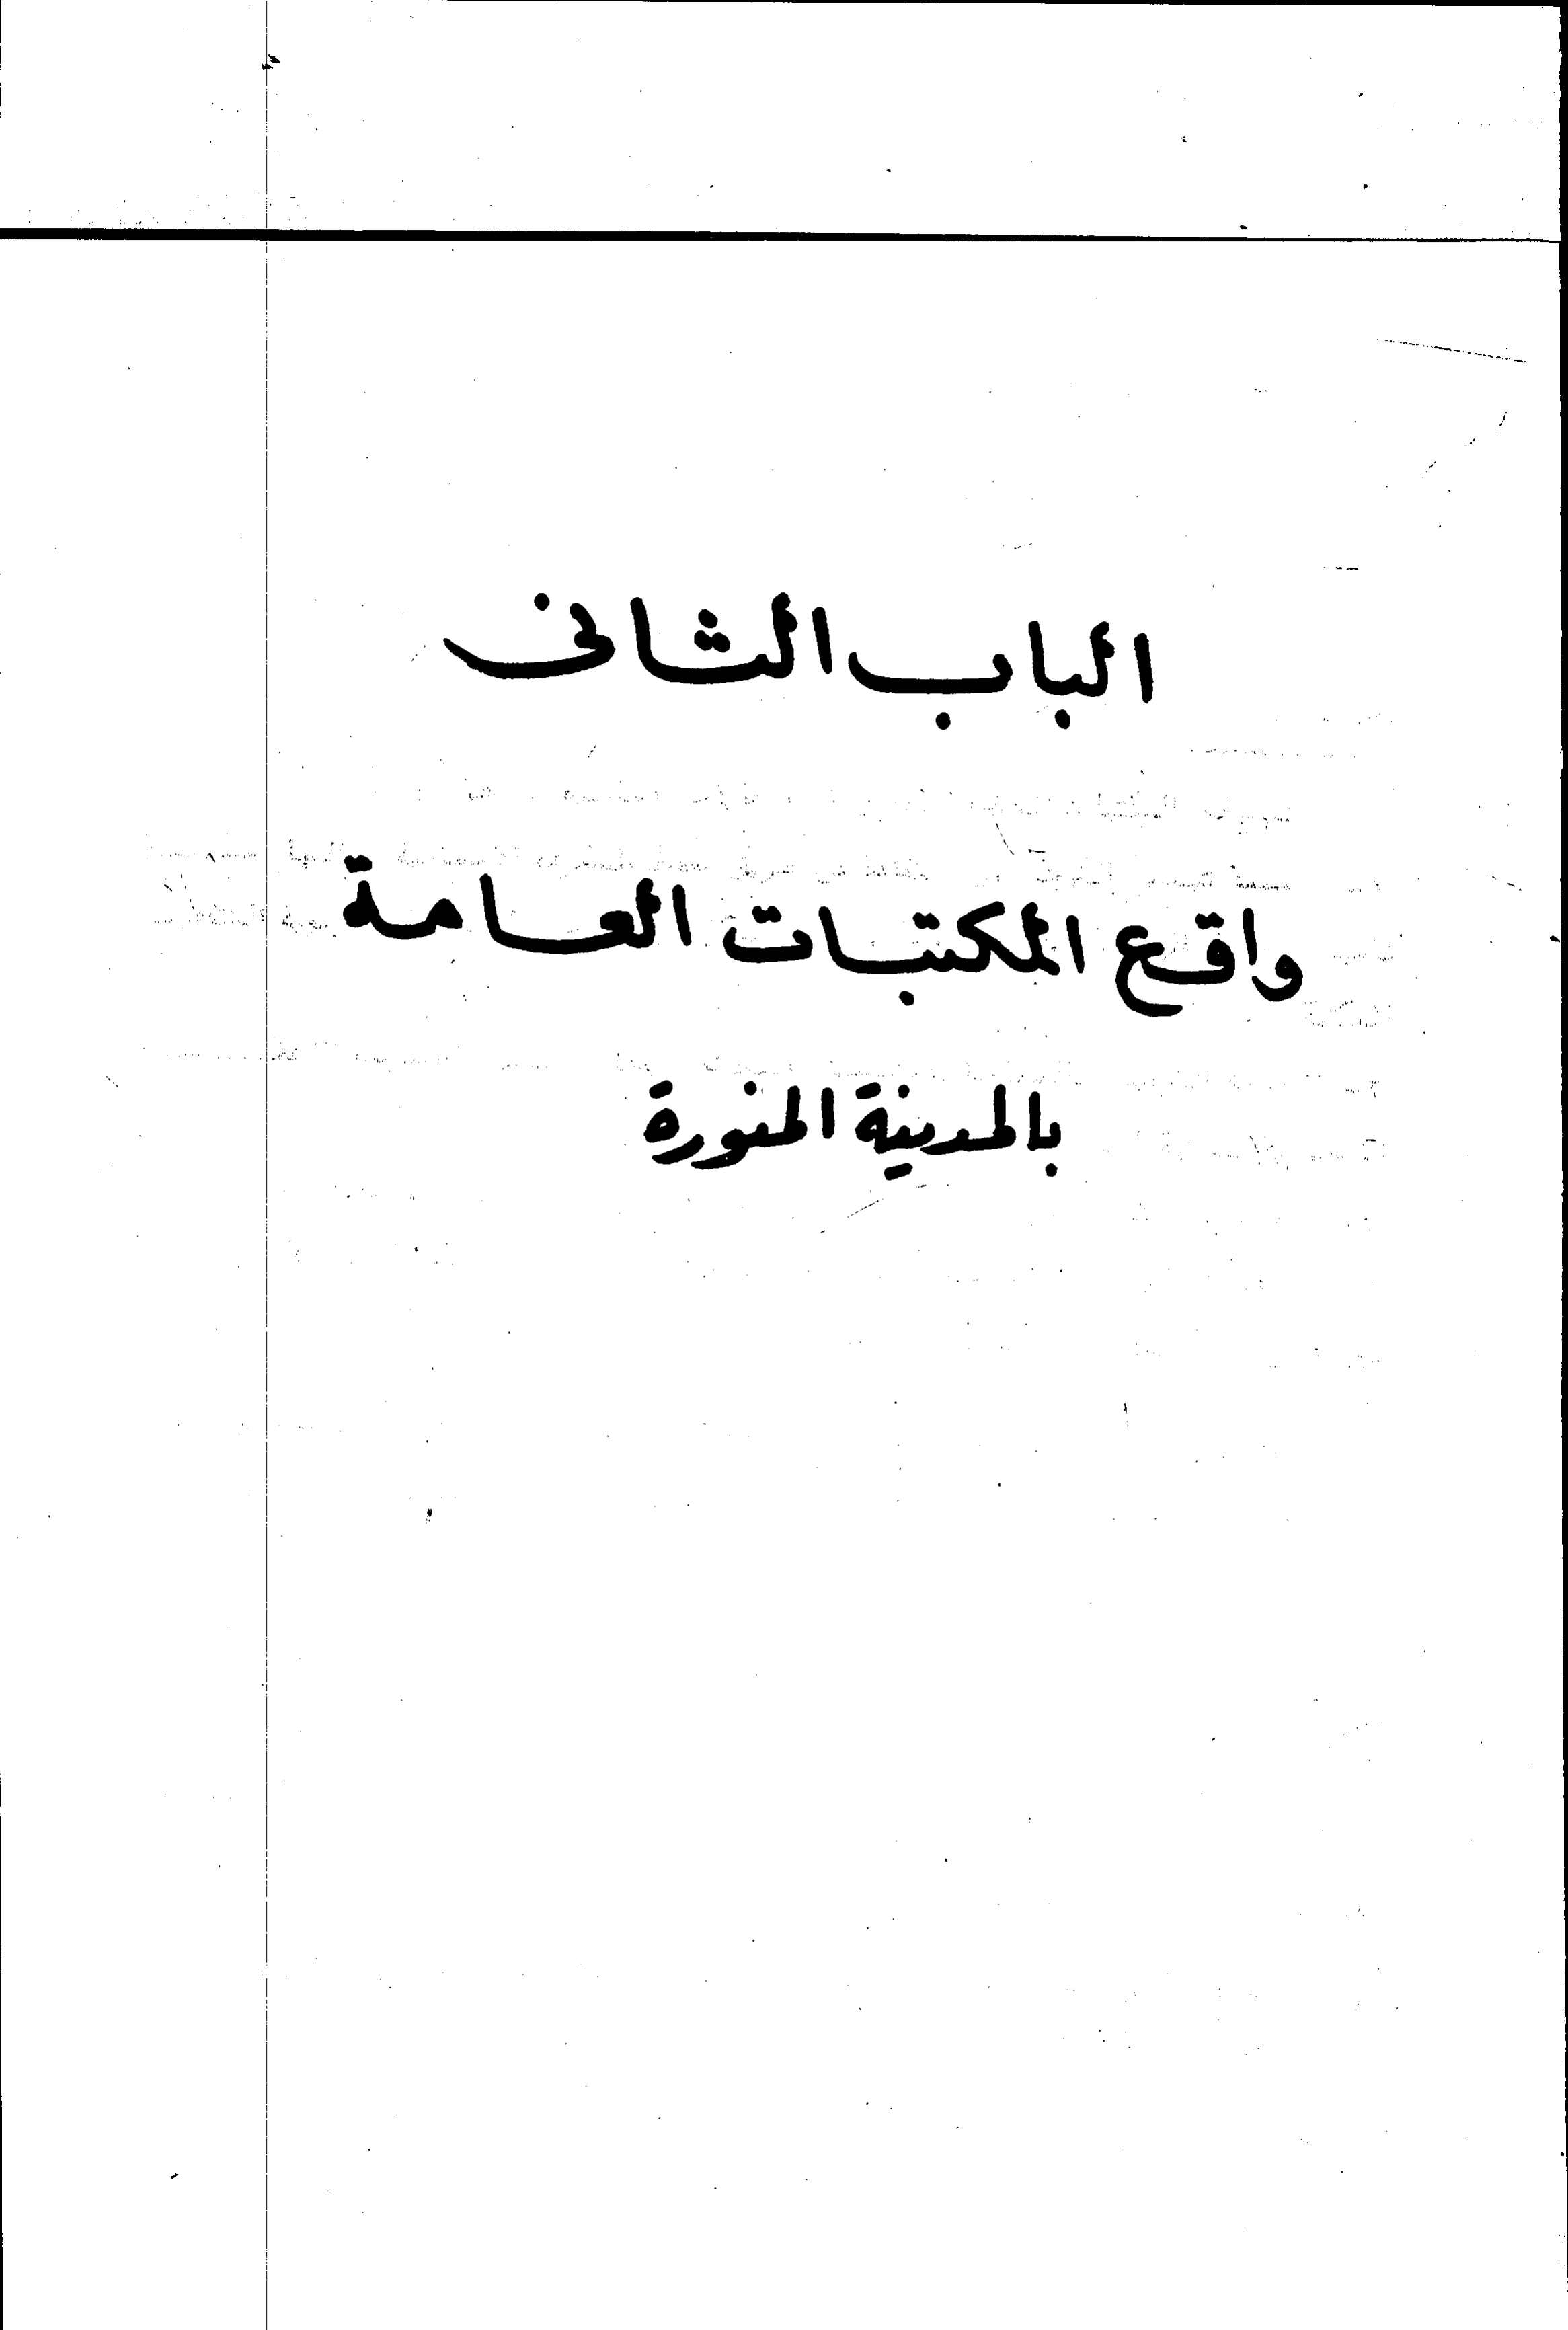 الباب الثانى
واقع المكتبات العامة
بالمدينة المنورة